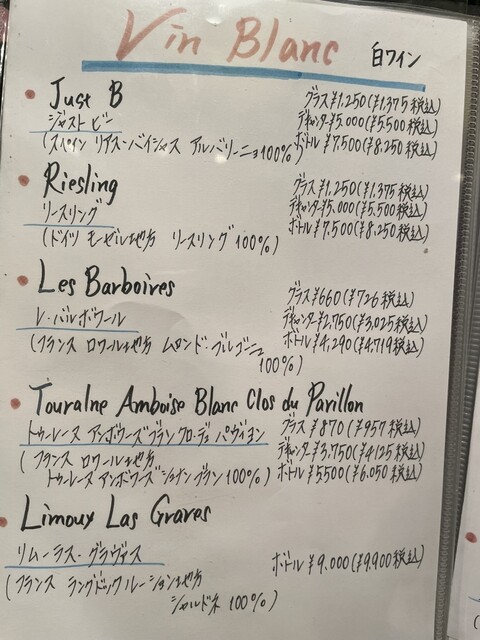 Vin Blanc 白ワイン
Just B グラス¥1.250(¥1.375税込)
ジャスト ビー デキャンター¥5.000(¥5.500税込)
(スペイン リアス・バイシャス アルバリーニョ100%) ボトル ¥7,500(¥8.250税込)
Riesling グラス¥1.250(¥1.375税込)
リースリング デキャンター¥5.000(¥5.500税込)
(ドイツ モーゼル地方 リースリング100%) ボトル¥7.500(¥8.250税込)
Les Barboires グラス¥660(¥726税込)
レ・バルボワール デキャンター¥2,750(¥3,025税込)
(フランス ロワール地方 ムロンド・ブルゴーニュ ボトル¥4,290(¥4,719税込)
100%)
Touralne Amboise Blanc Clos du Parillon
トゥーレーヌ アンボワーズブラン クロ・デュ パヴィヨン グラス¥870(¥957税込)
(フランス ロワール地方 デキャンター¥3,750(¥4125税込)
トゥーレーヌ アンボワーズ シュナンブラン100%) ボトル¥5500(¥6.050税込)
Limoux Las Graves
リムーラス・グラヴァス ボトル¥9.000(¥9.900税込)
(フランス ラングドックルーション地方
シャルドネ 100%)